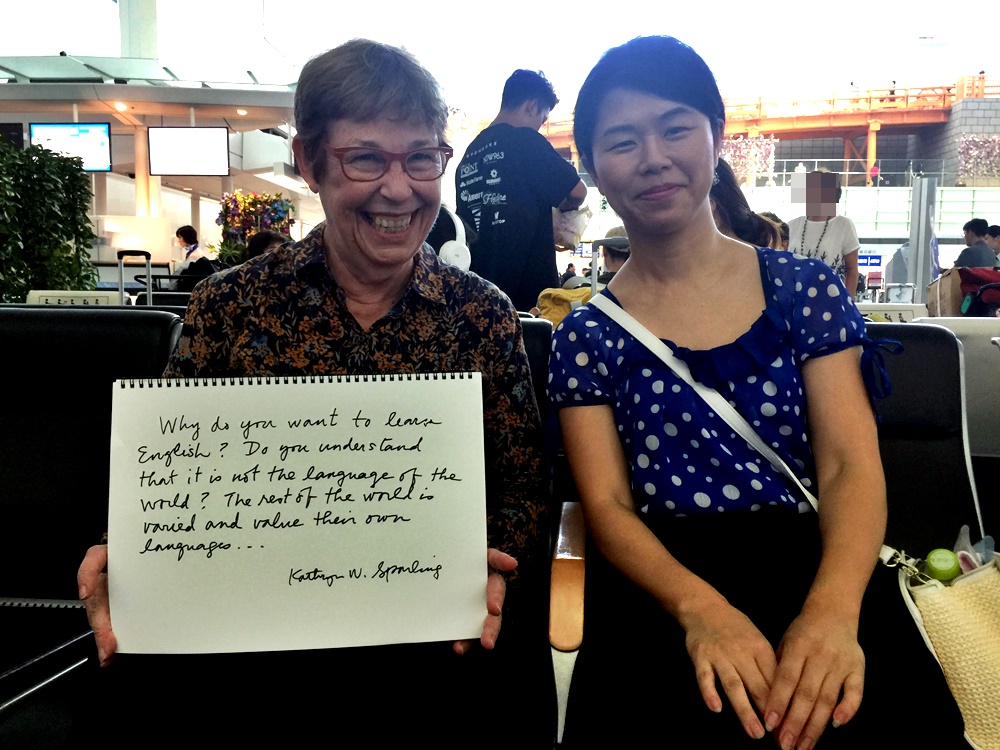 Why do you want to learn
English? Do you understand
that it is not the language of the
world? The rest of the world is
varied and value their own
languages...
Kathryn W. Sparling
POINT